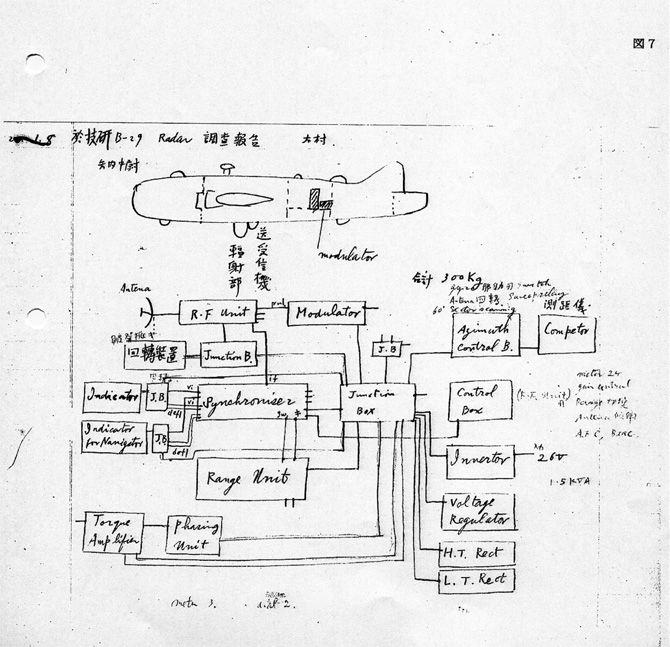 図7
於技研 B-29 Radar 調査報告 大村
矢内中尉
送受信機
輻射部
modulator
合計 300Kg
Antena
60° Sector scanning
測距儀
R.F Unit
Modulator
Azimuth
Control B.
Competor
回轉装置
Junction B.
J.B
Indicator
J.B.
Synchroniser
Junction
Box
Control
Box
gain control
Indicator
for Navigator
J.B
Invertor
26V
1.5 KVA
Range Unit
Voltage
Regulator
Torque
Amplifier
Phasing
Unit
H.T. Rect
L.T. Rect